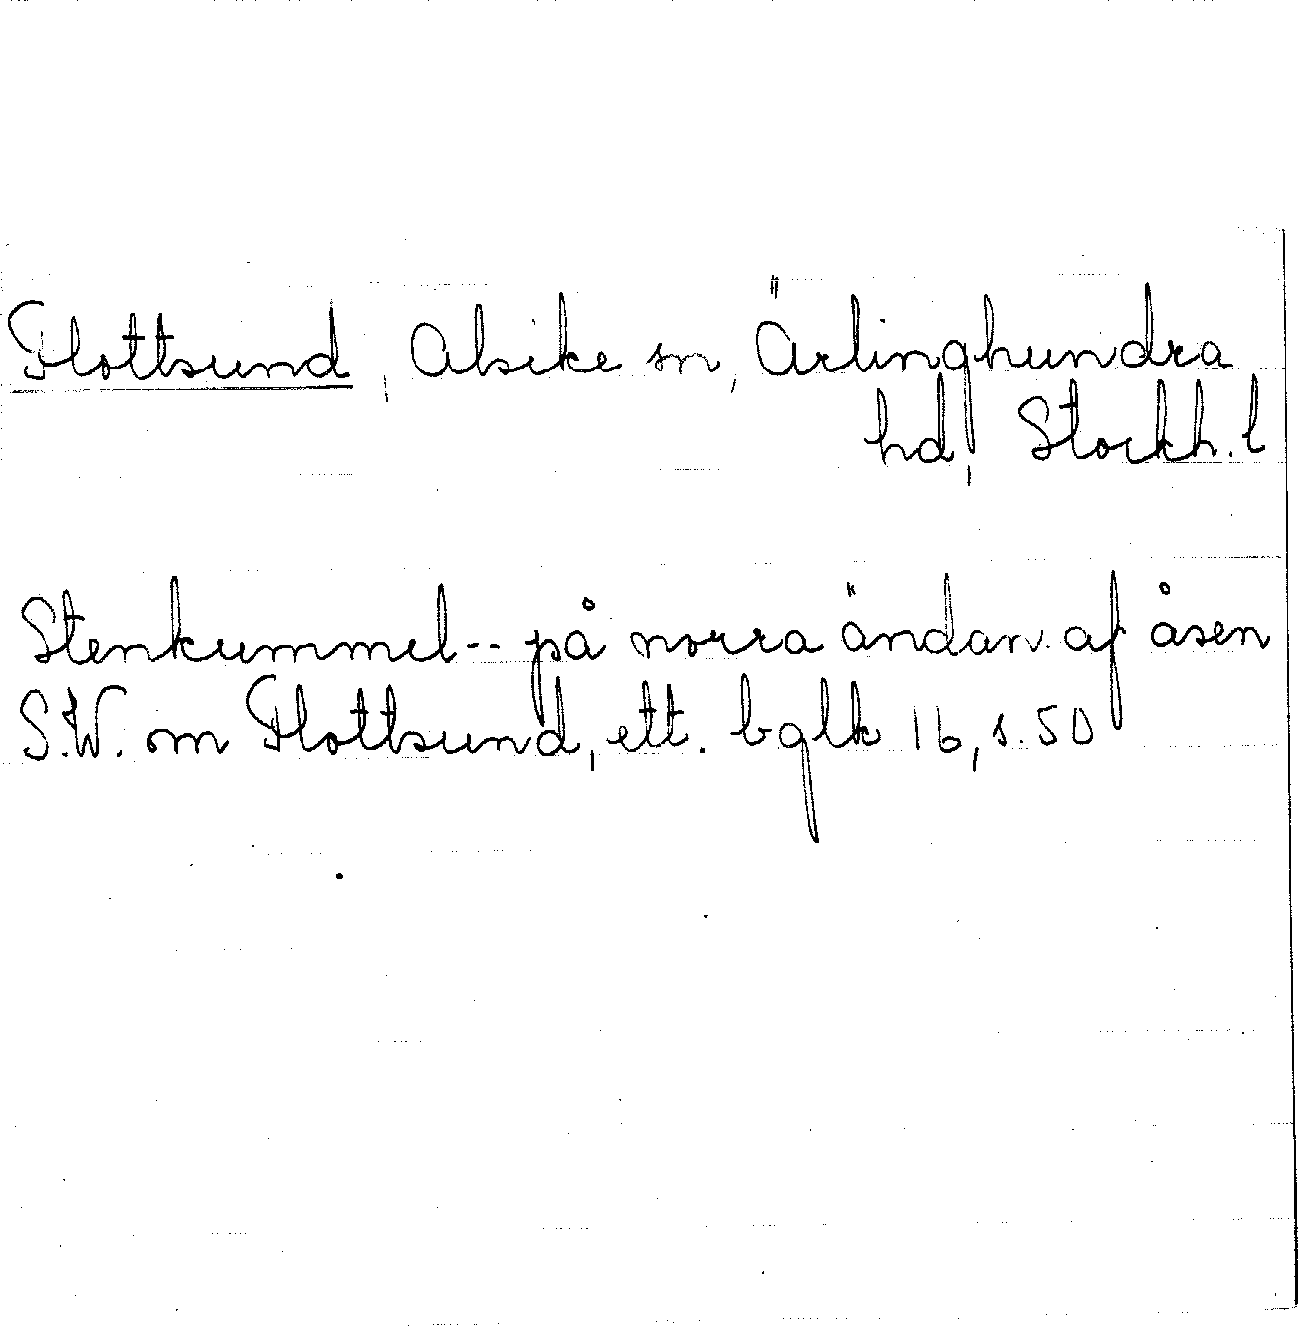 Flottsund, Alsike sn, Ärlinghundra
hd, Stockh. l
Stenkummel -- på norra ändan af åsen
S.W. om Flottsund, ett. bglk 16, s. 50